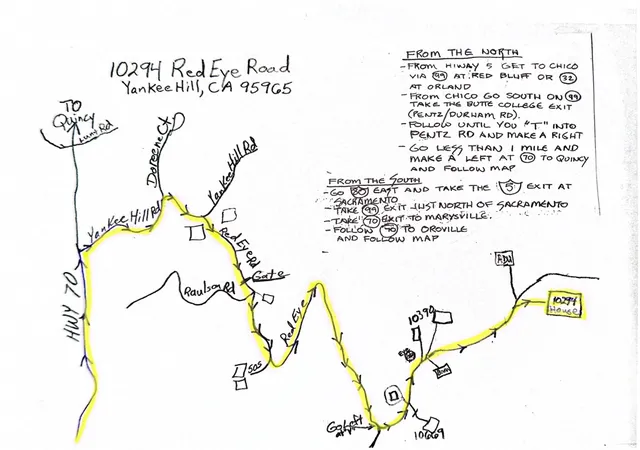 10294 Red Eye Road
Yankee Hill, CA 95965
FROM THE NORTH
- FROM HIWAY 5 GET TO CHICO
VIA 99 AT RED BLUFF OR 32
AT ORLAND
- FROM CHICO GO SOUTH ON 99
TAKE THE BUTTE COLLEGE EXIT
(PENTZ/DURHAM RD).
- FOLLOW UNTIL YOU "T" INTO
PENTZ RD AND MAKE A RIGHT
- GO LESS THAN 1 MILE AND
MAKE A LEFT AT 70 TO QUINCY
AND FOLLOW MAP
FROM THE SOUTH
- GO 80 EAST AND TAKE THE 5 EXIT AT
SACRAMENTO
- TAKE 99 EXIT JUST NORTH OF SACRAMENTO
- TAKE 70 EXIT TO MARYSVILLE.
- FOLLOW 70 TO OROVILLE
AND FOLLOW MAP
TO
Quincy
Lunt Rd
Doreene Ct
Yankee Hill Rd
Yankee Hill Rd
Red Eye Rd
Gate
Raulson Rd
HWY 70
Red Eye
505
Go Left
at Y
10390
10669
ADU
10294
House